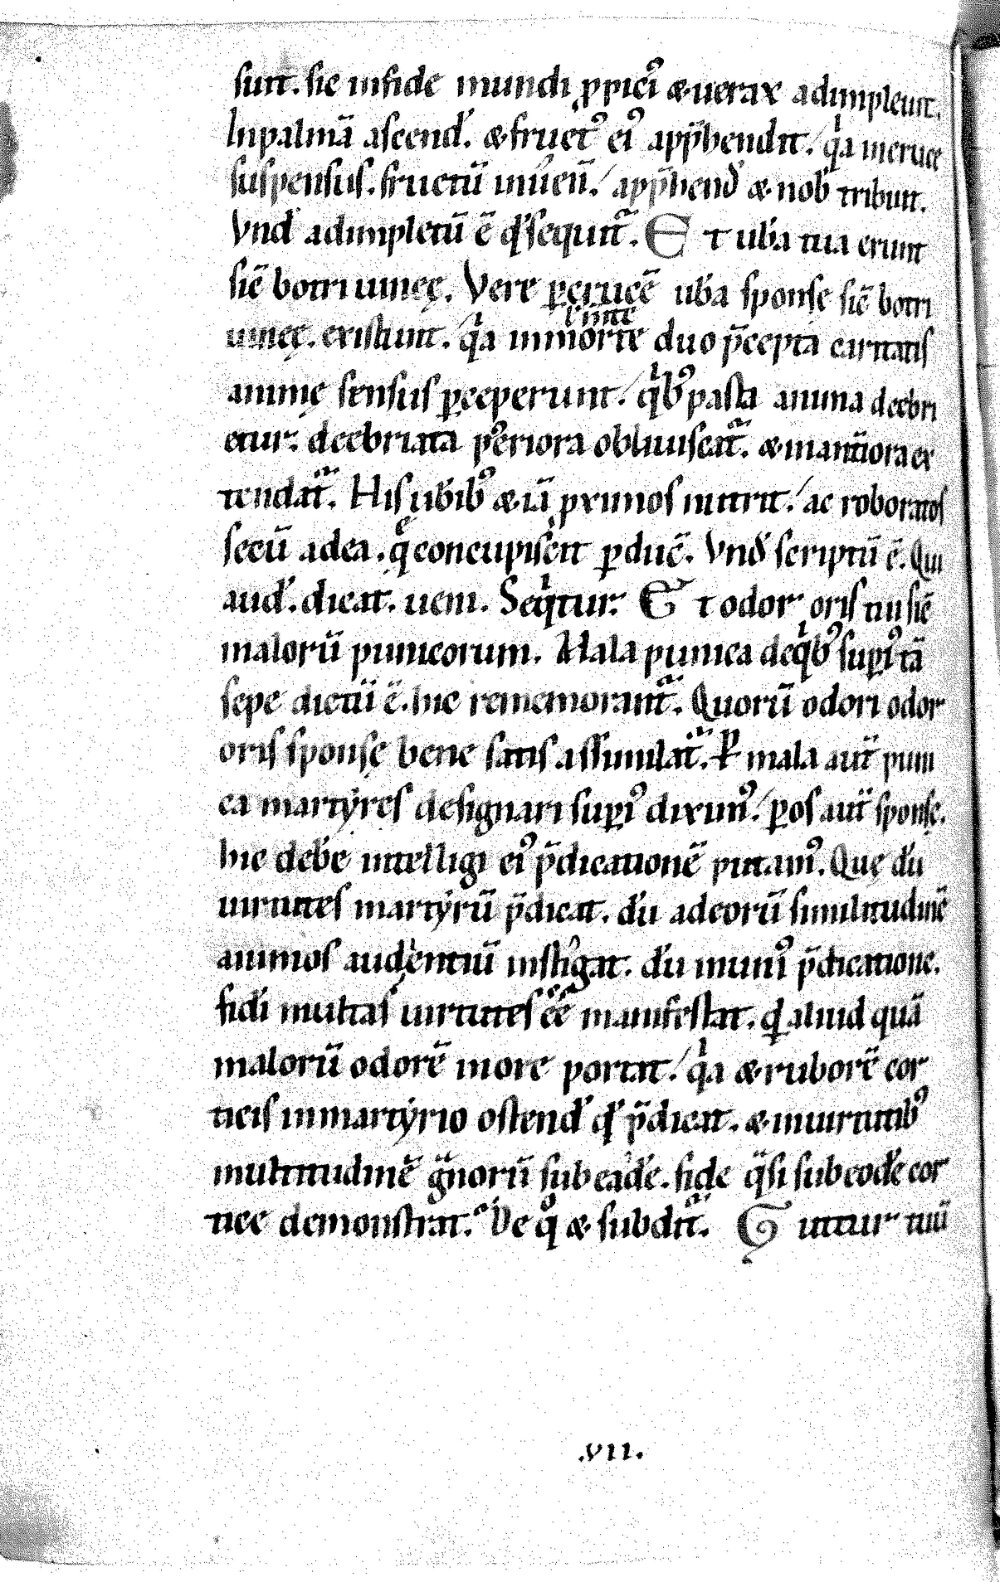 sunt. sic infide mundi ꝓpicꝰi & uerax adimpleuit.
In palmā ascend̛. & fructꝰ eiꝰ app̄hendit. / qͥa in cruce
suspensus. fructū inūen̄. / app̄hend̛ & nob̛ tribuit.
Vnd̛ adimpletū ē qd̛ sequit᷑. Et ub̛a tua erunt
sic̄ botri uineę. Vere ꝑ crucē ub̛a sponse sic̄ botri
uineę. existunt. / qͥa in morte l̛ inte duo p̄cepta caritatis
animę sensus ꝑceperunt. / qͥbꝰ pasta anima debri
etur. debriata p̛eriora obliuiscat᷑. & in anteriora ex
tendat᷑. His ub̛ibꝰ & iā proximos nutrit. / ac roboratos
secū ad ea. q̄ concupiscit ꝑduc̄. Vnd̛ scriptū ē. Qui
aud̛. dicat. ueni. Seqͥtur. Et odor oris tui sic̄
malorū punicorum. Mala punica de qͥbꝰ supͥꝰ tā
sepe dictū ē. hic rememorant᷑. Quorū odori odor
oris sponsę bene satis assimilat᷑. Ꝑ mala aut̄ puni
ca martyres designari supͥꝰ diximꝰ. / ꝑ os aut̄ sponsę.
hic deb̛e intelligi eiꝰ p̄dicationē putamꝰ. Quę du̅
uirtutes martyrū p̄dicat. du̅ ad eorū similitudinē
animos audientiū instigat. du̅ uniꝰ p̄dicatione.
fidi multas uirtutes ēē manifestat. qd̛ aliud quā
malorū odorē more portat. / qͥa & ruborē cor
ticis in martyrio ostend̛ qd̛ p̄dicat. & in uirtutibꝰ
multitudinē gͣnorū sub eād̛e. fide qͣsi sub eod̛e cor
tice demonstrat. De qͦ & subdit᷑. Guttur tuū
.VII.